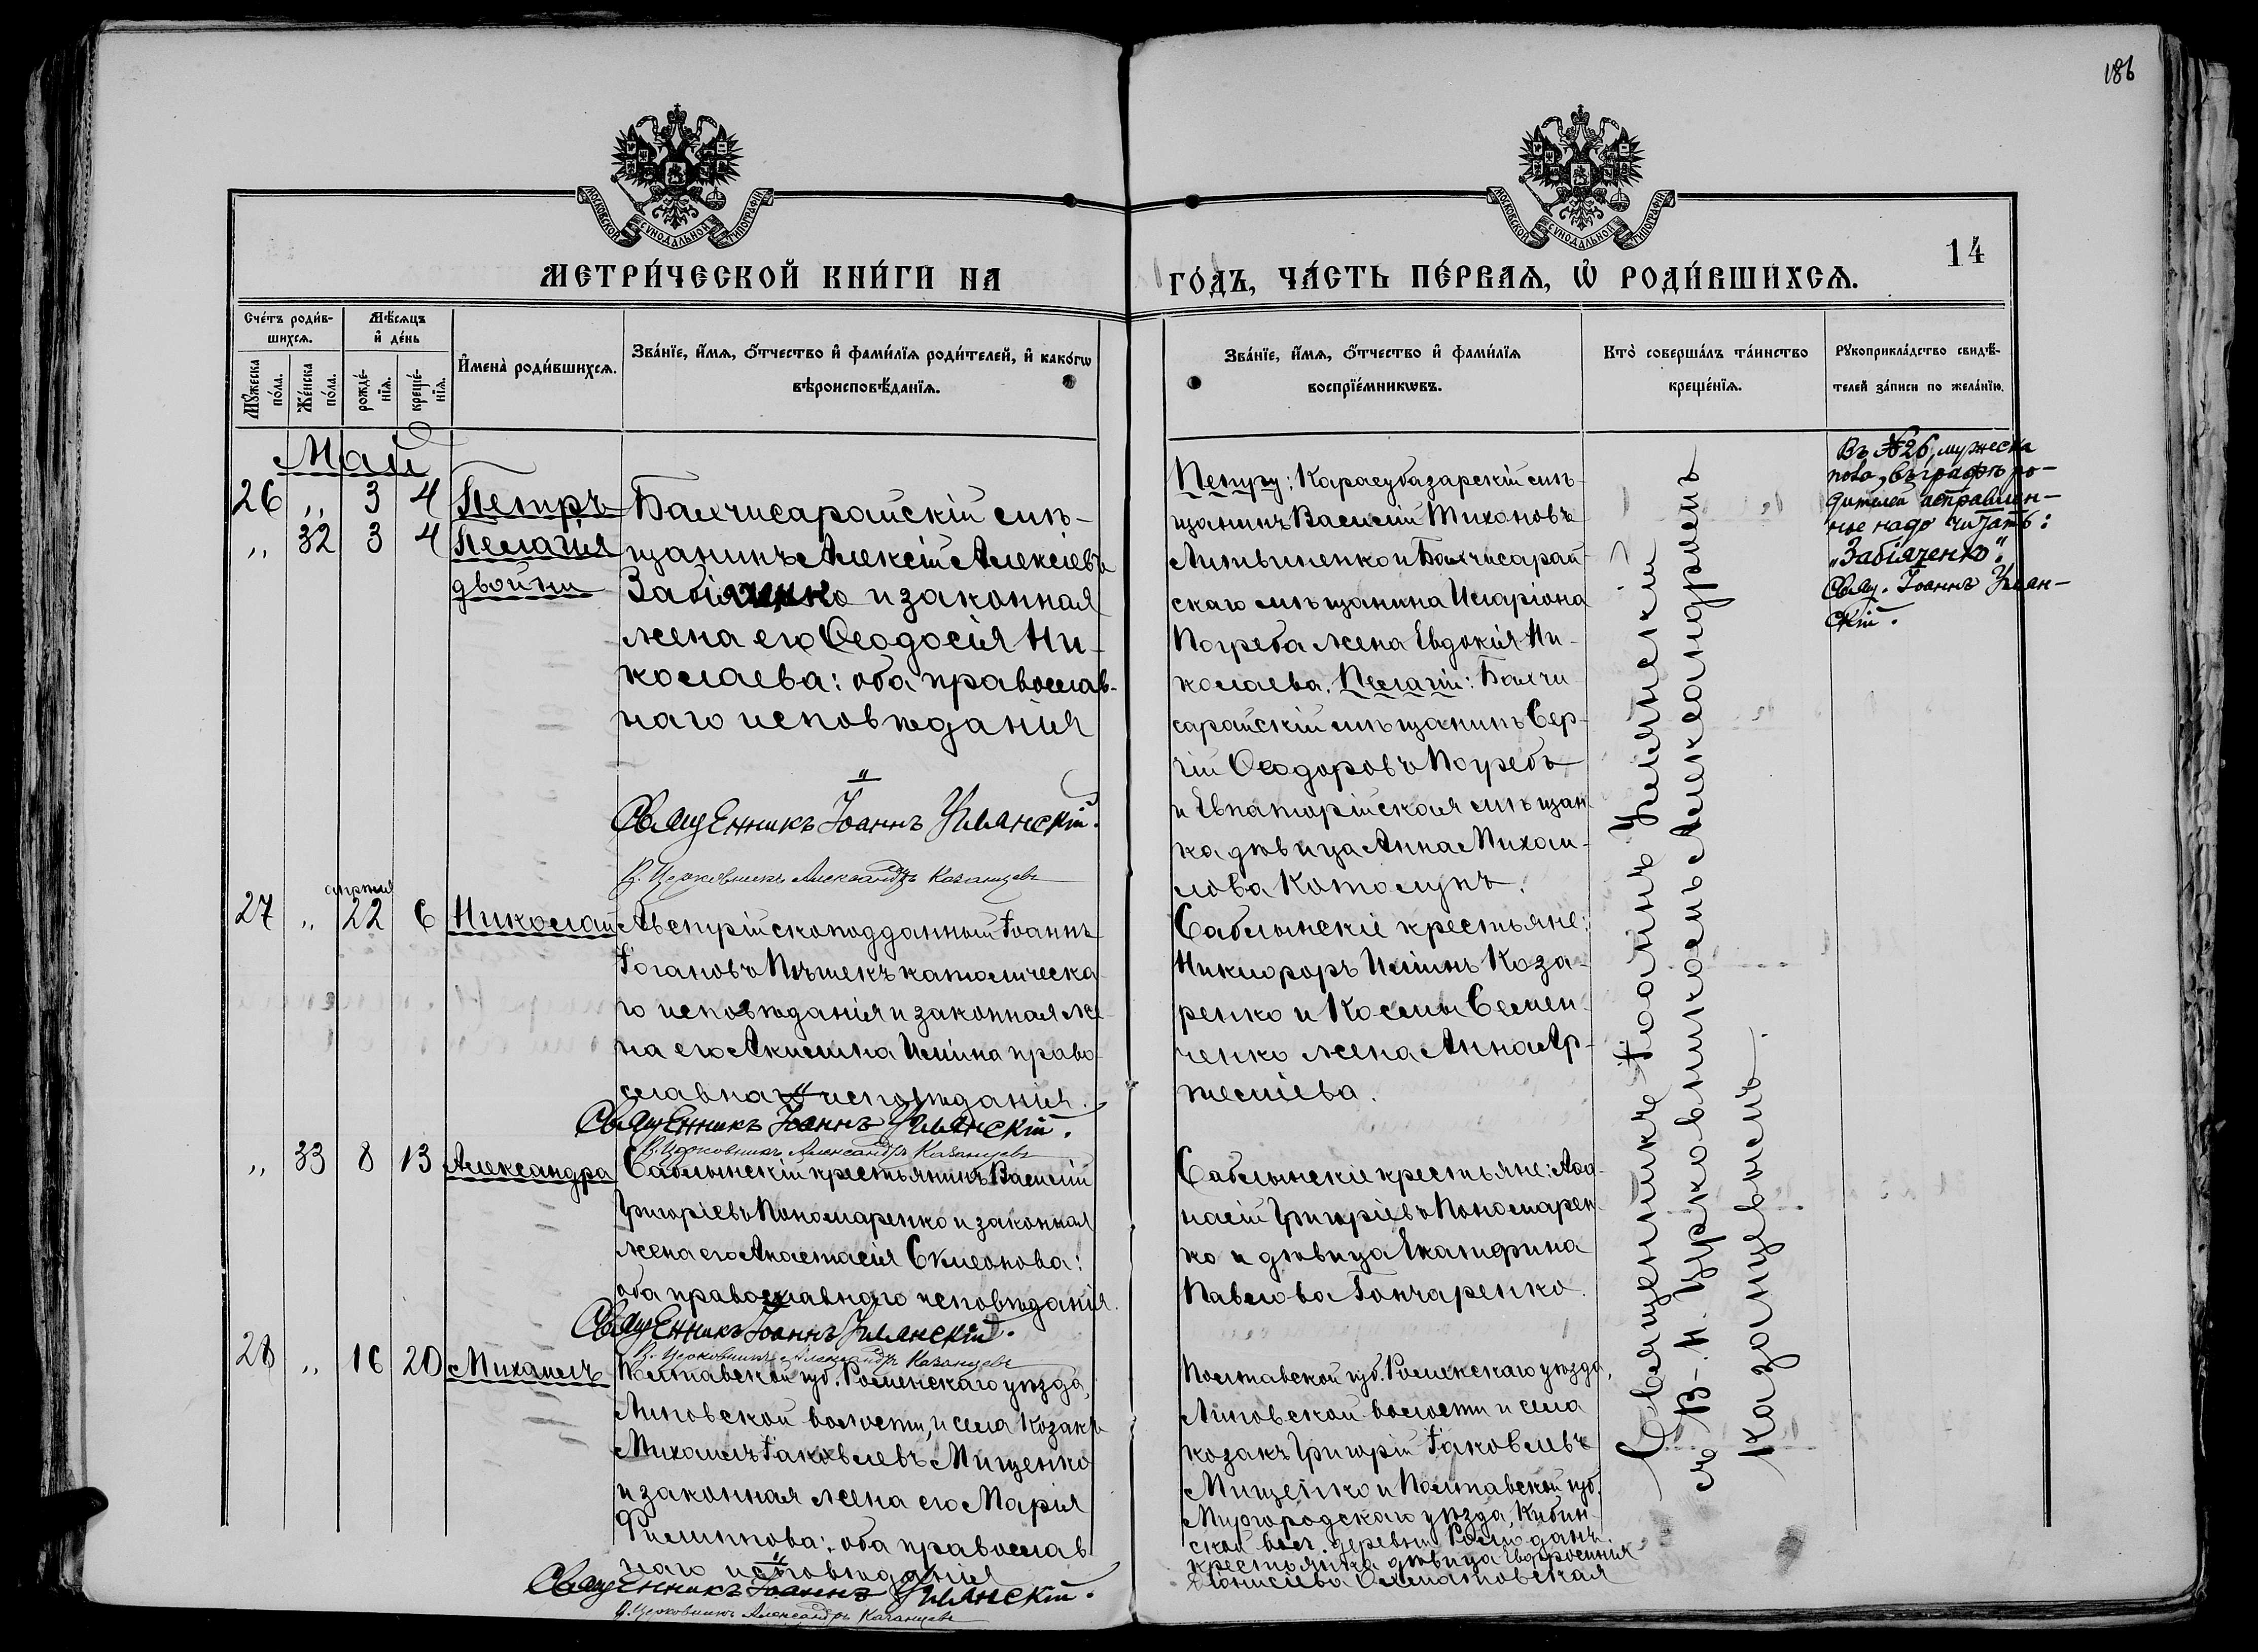 186
МОСКОВСКОЙ СѴНОДАЛЬНОЙ ТИПОГРАФІИ
МОСКОВСКОЙ СѴНОДАЛЬНОЙ ТИПОГРАФІИ
14
МЕТРИ́ЧЕСКОЙ КНИ́ГИ НА
ГО́ДЪ, ЧА́СТЬ ПЕ́РВАЯ, Ѡ҆ РОДИ́ВШИХСЯ.
Сче́тъ роди́в-
шихся.
Мѣ́сяцъ
и҆ де́нь
Мꙋ́жеска
по́ла.
Же́нска
по́ла.
рожде́-
нїя.
креще́-
нїя.
И҆мена̀ роди́вшихся.
Зва́нїе, и҆́мя, ѻ҆́тчество и҆ фами́лїя роди́телей, и҆ како́гѡ
вѣроисповѣ́данїя.
Зва́нїе, и҆́мя, ѻ҆́тчество и҆ фами́лїя
воспрїе́мникѡвъ.
Кто̀ соверша́лъ та́инство
креще́нїя.
Рꙋкоприкла́дство свидѣ́-
телей за́писи по жела́нїю.
Май
26 „ 3 4 Петръ
„ 32 3 4 Пелагія
двойни
Бахчисарайскій мѣ-
щанинъ Алексій Алексіевъ
Забіяченко и законная
жена его Ѳеодосія Ни-
колаева: оба православ-
наго исповѣданія
Священникъ Іоаннъ Улянскій.
В. Церковникъ Александръ Казанцевъ
Петру: Карасубазарскій мѣ-
щанинъ Василій Тихоновъ
Литвиненко и Бахчисарай-
скаго мѣщанина Иларіона
Погреба жена Евдокія Ни-
колаева. Пелагіи: Бахчи
сарайскій мѣщанинъ Сер-
гій Ѳеодоровъ Погребъ
и Евпаторійская мѣщан
ка дѣвица Анна Михай-
лова
Въ №26, мужеска
пола, въ графѣ ро-
дителей исправлен-
ное надо читать:
„Забіяченко".
Свящ. Іоаннъ Улян-
скій.
Священникъ Іоаннъ Улянскій
съ В.-И. Церковникомъ Александромъ
Казанцевымъ.
апрѣля
27 „ 22 6 Николай
Австрійскоподданный Іоаннъ
католическа-
го исповѣданія и законная же-
на его Акилина Иліина право-
славнаго исповѣданія.
Священникъ Іоаннъ Улянскій.
В. Церковникъ Александръ Казанцевъ
Саблынскіе крестьяне:
Никифоръ Иліинъ Коза-
ренко и Космы Семен-
ченко жена Анна Ар-
теміева.
„ 33 8 13 Александра
Саблынскій крестьянинъ Василій
Григоріевъ Пономаренко и законная
жена его Анастасія Симеонова:
оба православнаго исповѣданія.
Священникъ Іоаннъ Улянскій.
В. Церковникъ Александръ Казанцевъ
Саблынскіе крестьяне: Аѳа-
насій Григоріевъ Пономарен-
ко и дѣвица Екатерина
Павлова Гончаренко.
28 „ 16 20 Михаилъ
Полтавской губ. Роменскаго уѣзда,
Липовской волости, и села козакъ
Михаилъ Іаковлевъ Мищенко
и законная жена его Марія
Филиппова: оба православ
наго исповѣданія
Священникъ Іоаннъ Улянскій.
В. Церковникъ Александръ Казанцевъ
Полтавской губ. Роменскаго уѣзда,
Липовской волости и села
козакъ Григорій Іаковлевъ
Мищенко и Полтавской губ.
Миргородскаго уѣзда, Кибин-
ской вол. деревни
крестьянка дѣвица Евфросинія
Діонисіева